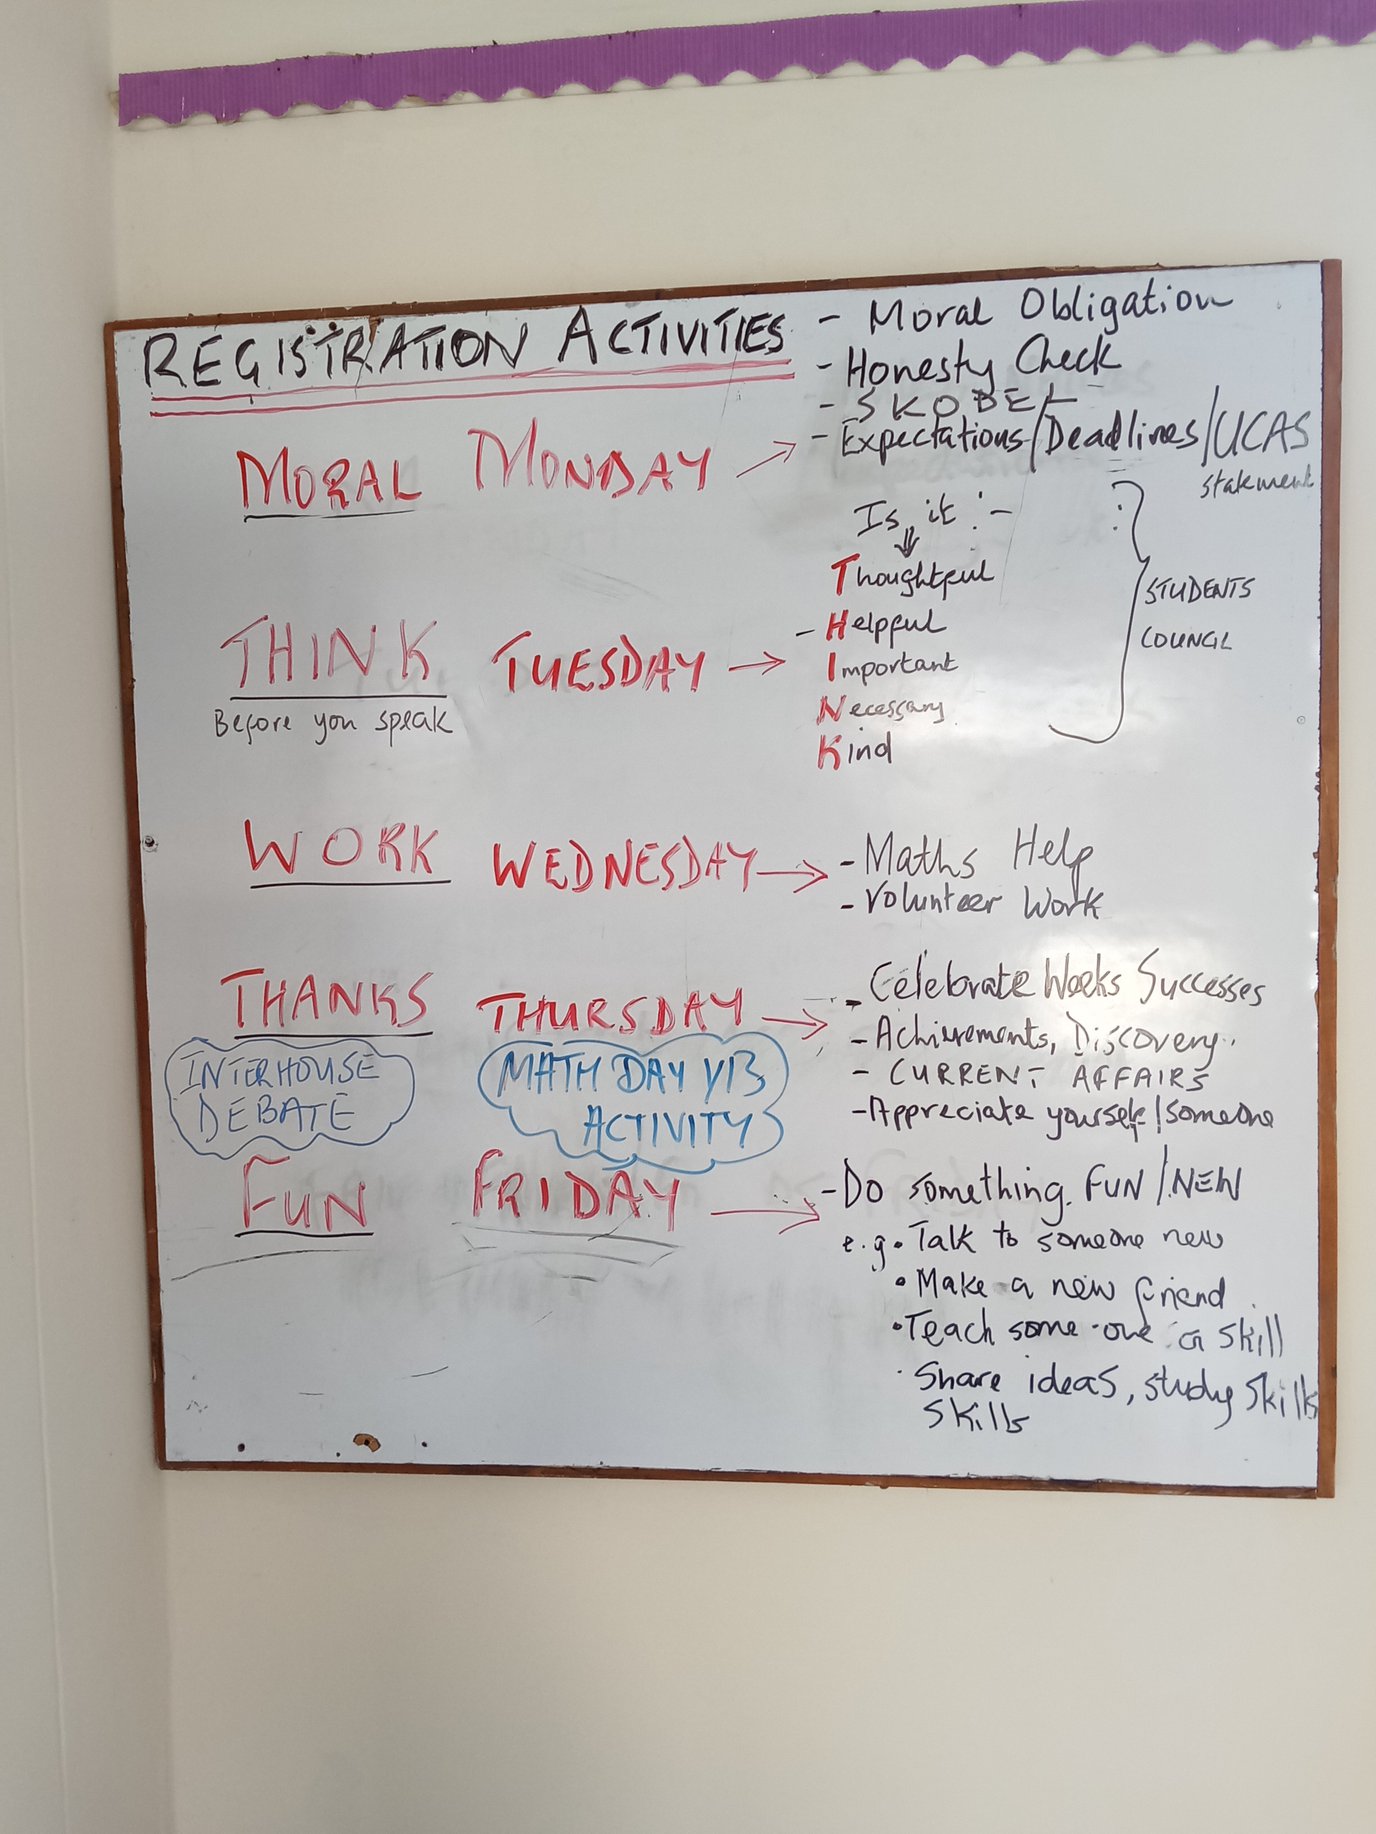 REGISTRATION ACTIVITIES
- Moral Obligation
- Honesty Check
- SKOBEL
- Expectations/Deadlines/UCAS
statement
MORAL MONDAY
Is it :-
Thoughtful
- Helpful
Important
Necessary
Kind
STUDENTS
COUNCIL
THINK TUESDAY
Before you speak
WORK WEDNESDAY
- Maths Help
- Volunteer Work
THANKS THURSDAY
- Celebrate Weeks Successes
- Achievements, Discovery.
- CURRENT AFFAIRS
- Appreciate yourself/someone
INTERHOUSE
DEBATE
MATH DAY Y13
ACTIVITY
FUN FRIDAY
- Do something FUN/NEW
e.g. • Talk to someone new
• Make a new friend
• Teach some-one a skill
• Share ideas, study skills
skills